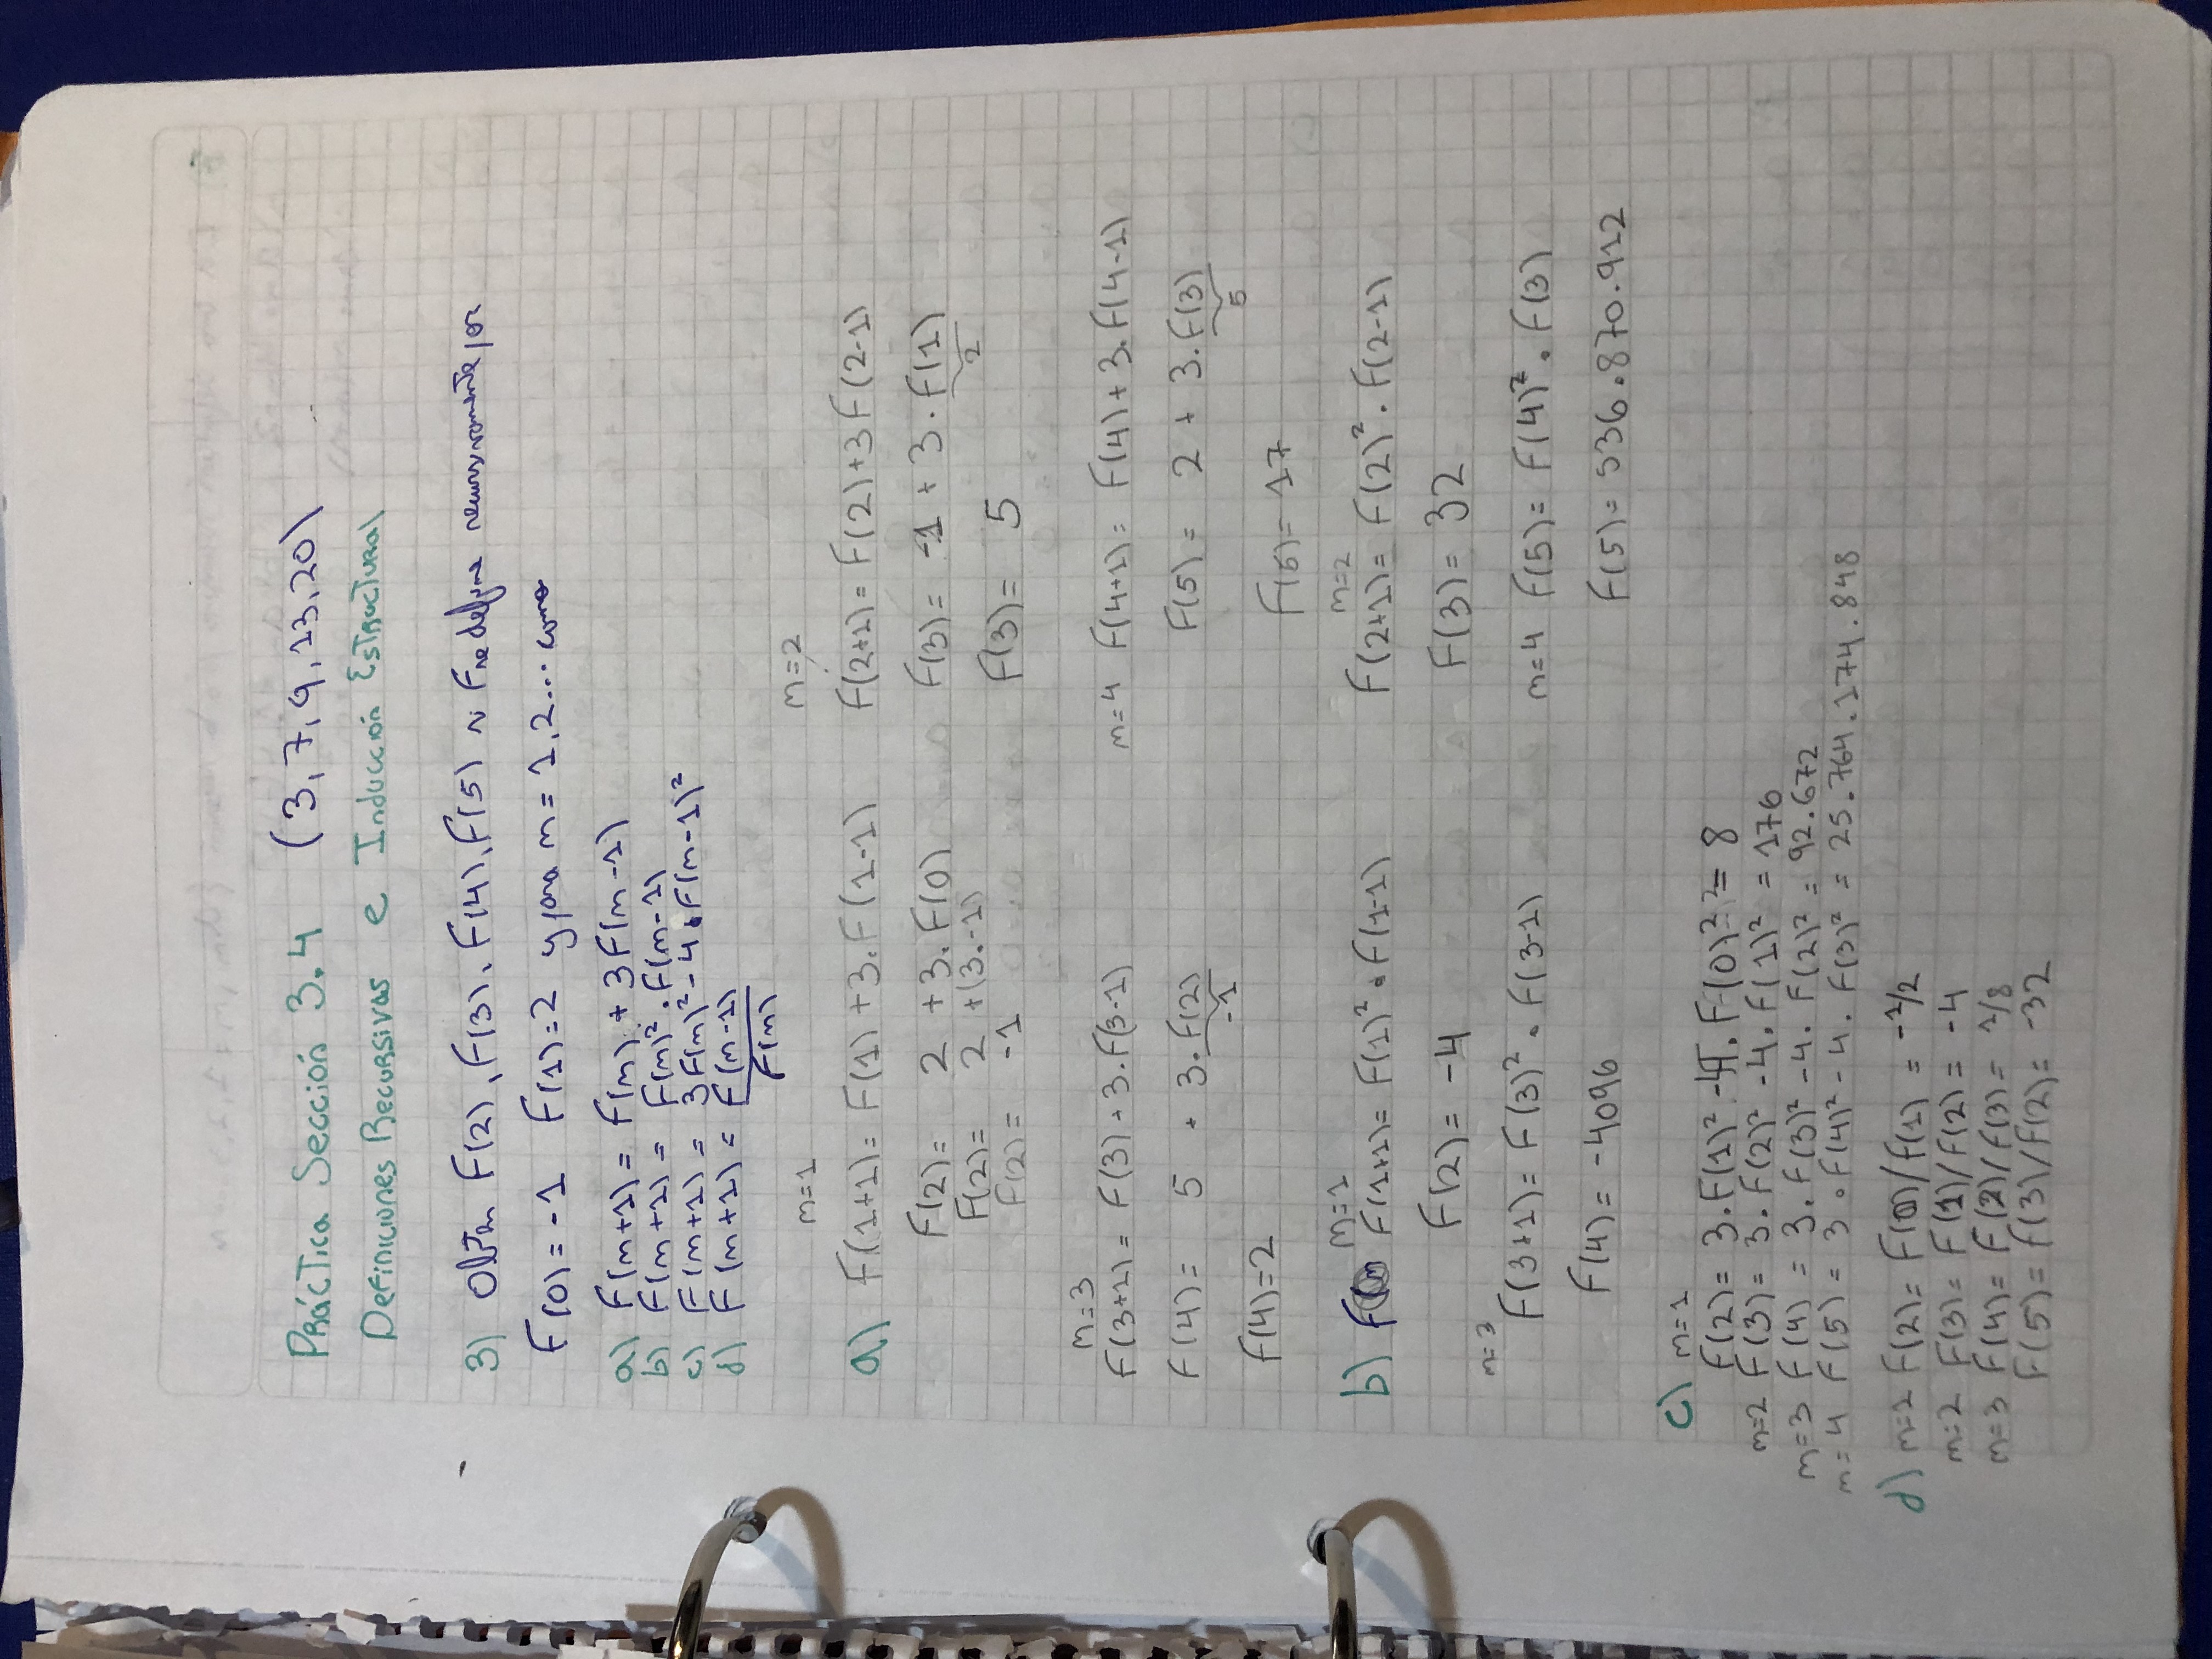 Práctica Sección 3.4 (3, 7, 9, 13, 20)
Definiciones Recursivas e Inducción Estructural
3) Obtén F(2), F(3), F(4), F(5) si F se define recursivamente por
F(0) = -1 F(1) = 2 y para n = 1, 2... como
a) F(n+1) = F(n) + 3F(n-1)
b) F(n+1) = F(n)² · F(n-1)
c) F(n+1) = 3F(n)² - 4·F(n-1)²
d) F(n+1) = F(n-1)
F(n)
n=1
a) F(1+1) = F(1) + 3·F(1-1)
F(2) = 2 + 3·F(0)
F(2) = 2 + (3·-1)
F(2) = -1
n=2
F(2+1) = F(2) + 3F(2-1)
F(3) = -1 + 3·F(1)
2
F(3) = 5
n=3
F(3+1) = F(3) + 3·F(3-1)
F(4) = 5 + 3·F(2)
-1
F(4) = 2
n=4 F(4+1) = F(4) + 3·F(4-1)
F(5) = 2 + 3·F(3)
5
F(5) = 17
n=1
b) F(1+1) = F(1)² · F(1-1)
F(2) = -4
n=2
F(2+1) = F(2)² · F(2-1)
F(3) = 32
n=3
F(3+1) = F(3)² · F(3-1)
F(4) = -4096
n=4 F(5) = F(4)² · F(3)
F(5) = 536.870.912
c) n=1
F(2) = 3·F(1)² - 4·F(0)² = 8
n=2 F(3) = 3·F(2)² - 4·F(1)² = 176
n=3 F(4) = 3·F(3)² - 4·F(2)² = 92.672
n=4 F(5) = 3·F(4)² - 4·F(3)² = 25.764.174.848
d) n=1 F(2) = F(0)/F(1) = -1/2
n=2 F(3) = F(1)/F(2) = -4
n=3 F(4) = F(2)/F(3) = 1/8
F(5) = F(3)/F(2) = -32